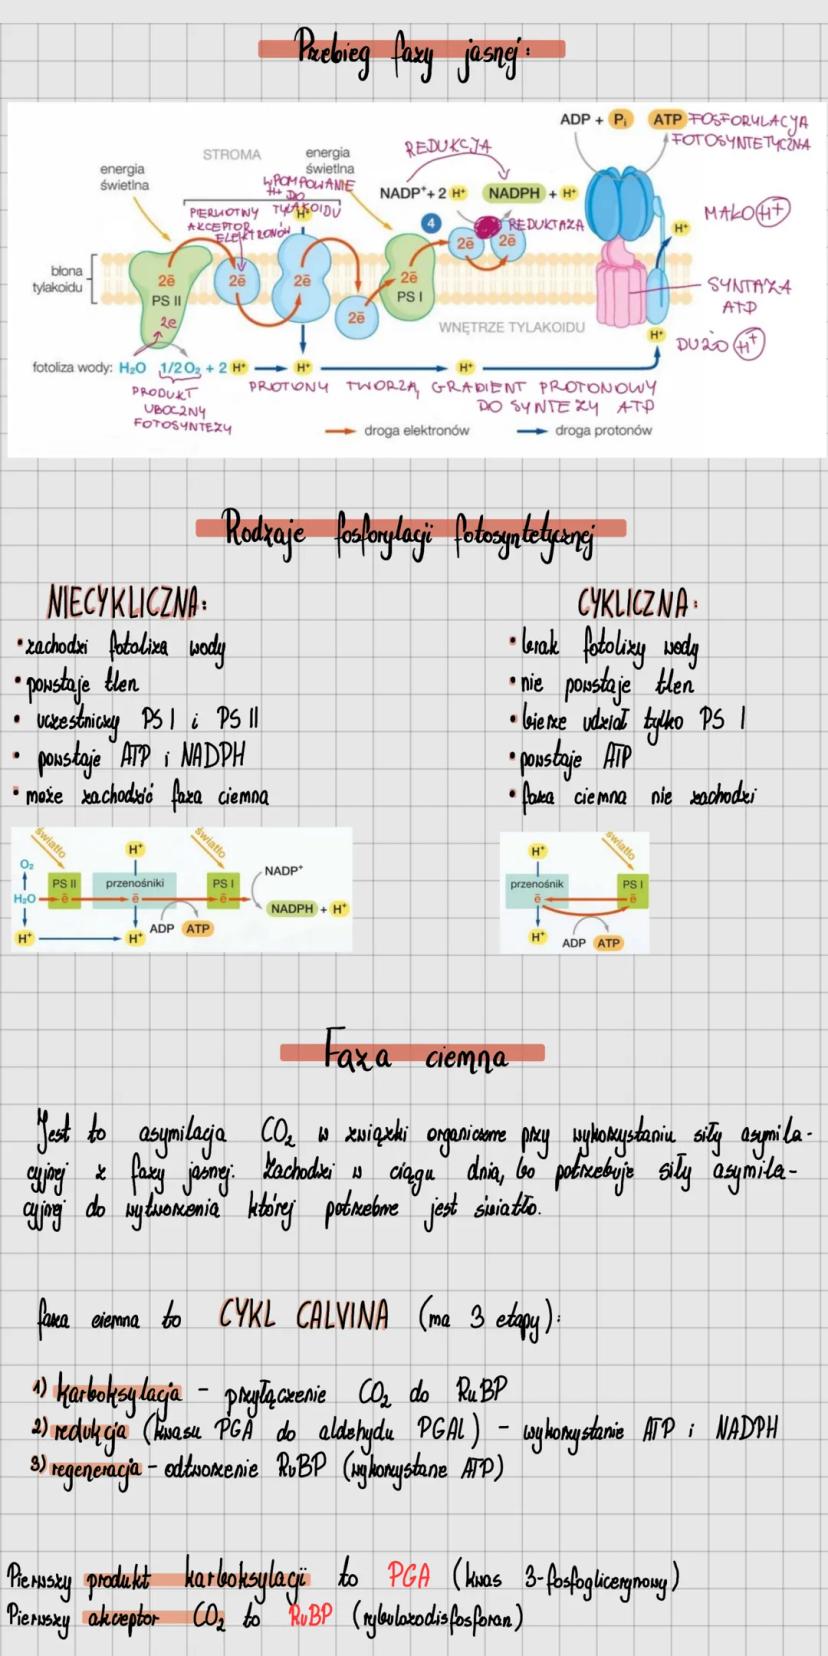 Przebieg fazy jasnej:
ADP + Pi ATP FOSFORULACJA
FOTOSYNTETYCZNA
REDUKCJA
STROMA
energia
świetlna
energia
świetlna
WPOMPOWANIE
H+ DO
TYLAKOIDU
H+
NADP+ + 2 H+ NADPH + H+
PIERWOTNY
AKCEPTOR
ELEKTRONÓW
4
REDUKTAZA
MAŁO H+
H+
błona
tylakoidu
2ē
PS II
2ē
2ē
2ē
2ē
PS I
2ē
2ē
SYNTAZA
ATP
WNĘTRZE TYLAKOIDU
2e
H+
DUŻO H+
fotoliza wody: H₂O 1/2 O₂ + 2 H+ H+ H+
PRODUKT
UBOCZNY
FOTOSYNTEZY
PROTONY TWORZĄ GRADIENT PROTONOWY
DO SYNTEZY ATP
droga elektronów droga protonów
Rodzaje fosforylacji fotosyntetycznej
NIECYKLICZNA:
• zachodzi fotoliza wody
• powstaje tlen
• uczestniczy PS I i PS II
• powstaje ATP i NADPH
• może zachodzić faza ciemna
światło
O₂
H₂O
H+
PS II
ē
H+
przenośniki
ē
H+
ADP ATP
światło
PS I
ē
NADP+
NADPH + H+
CYKLICZNA:
• brak fotolizy wody
• nie powstaje tlen
• bierze udział tylko PS I
• powstaje ATP
• faza ciemna nie zachodzi
H+
przenośnik
ē
H+
światło
PS I
ē
ADP ATP
Faza ciemna
Jest to asymilacja CO₂ w związki organiczne przy wykorzystaniu siły asymila-
cyjnej z fazy jasnej. Zachodzi w ciągu dnia, bo potrzebuje siły asymila-
cyjnej do wytworzenia której potrzebne jest światło.
faza ciemna to CYKL CALVINA (ma 3 etapy):
1) karboksylacja - przyłączenie CO₂ do RuBP
2) redukcja (kwasu PGA do aldehydu PGAL) - wykorzystanie ATP i NADPH
3) regeneracja - odtworzenie RuBP (wykorzystane ATP)
Pierwszy produkt karboksylacji to PGA (kwas 3-fosfoglicerynowy)
Pierwszy akceptor CO₂ to RuBP (rybulozodisfosforan)